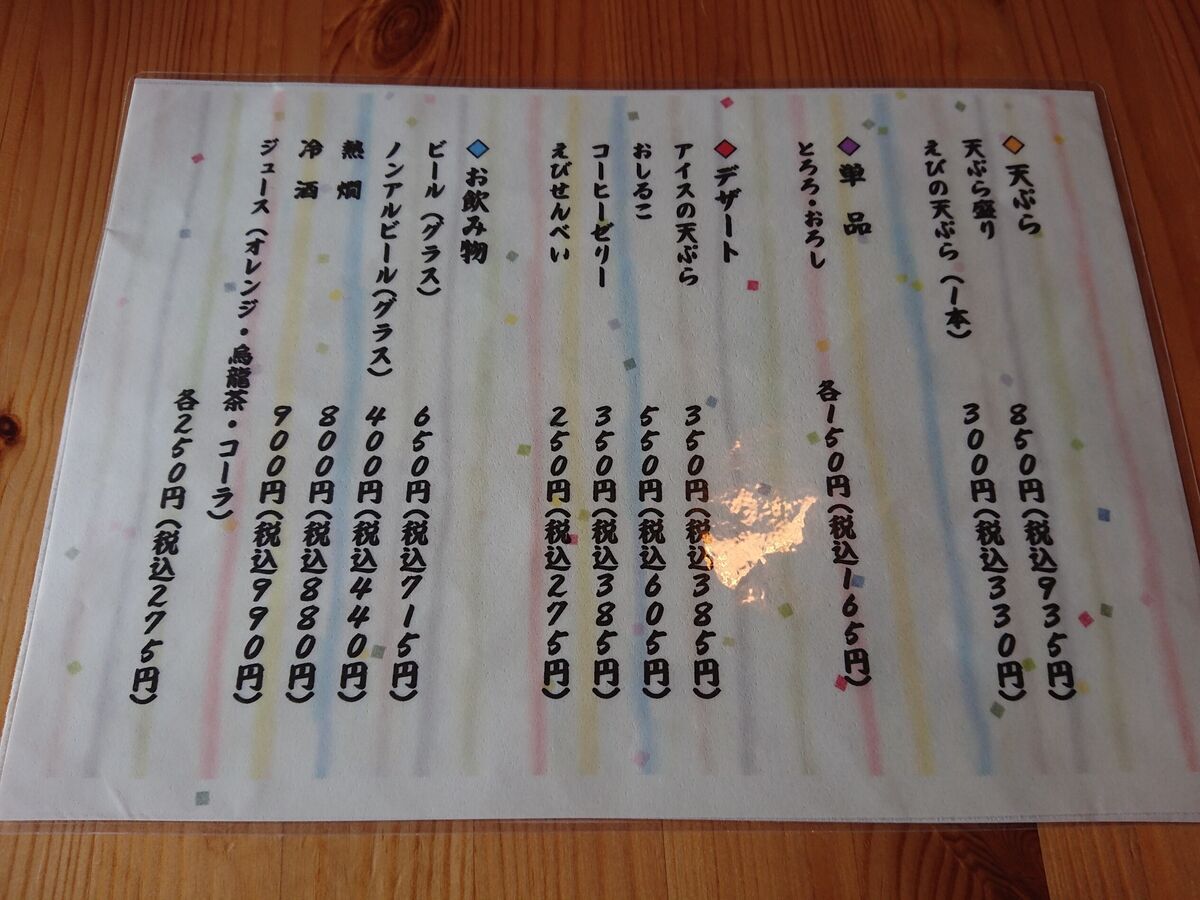 ◆天ぷら
天ぷら盛り 850円(税込935円)
えびの天ぷら(1本) 300円(税込330円)
◆単品
とろろ・おろし 各150円(税込165円)
◆デザート
アイスの天ぷら 350円(税込385円)
おしるこ 550円(税込605円)
コーヒーゼリー 350円(税込385円)
えびせんべい 250円(税込275円)
◆お飲み物
ビール(グラス) 650円(税込715円)
ノンアルビール(グラス) 400円(税込440円)
熱燗 800円(税込880円)
冷酒 900円(税込990円)
ジュース(オレンジ・烏龍茶・コーラ)
各250円(税込275円)